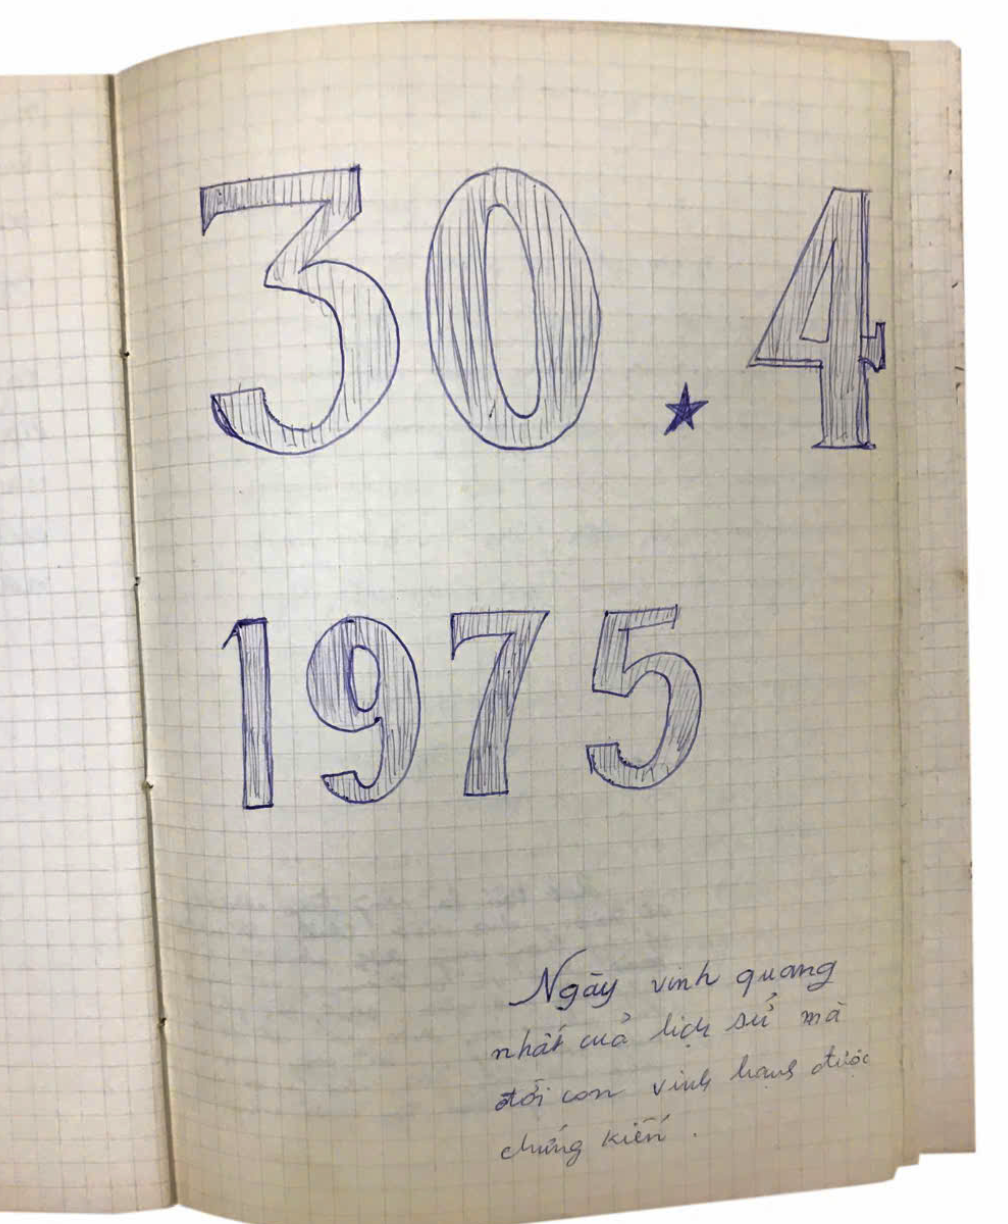 30.4
1975
Ngày vinh quang
nhất của lịch sử mà
đời con vinh hạnh được
chứng kiến.